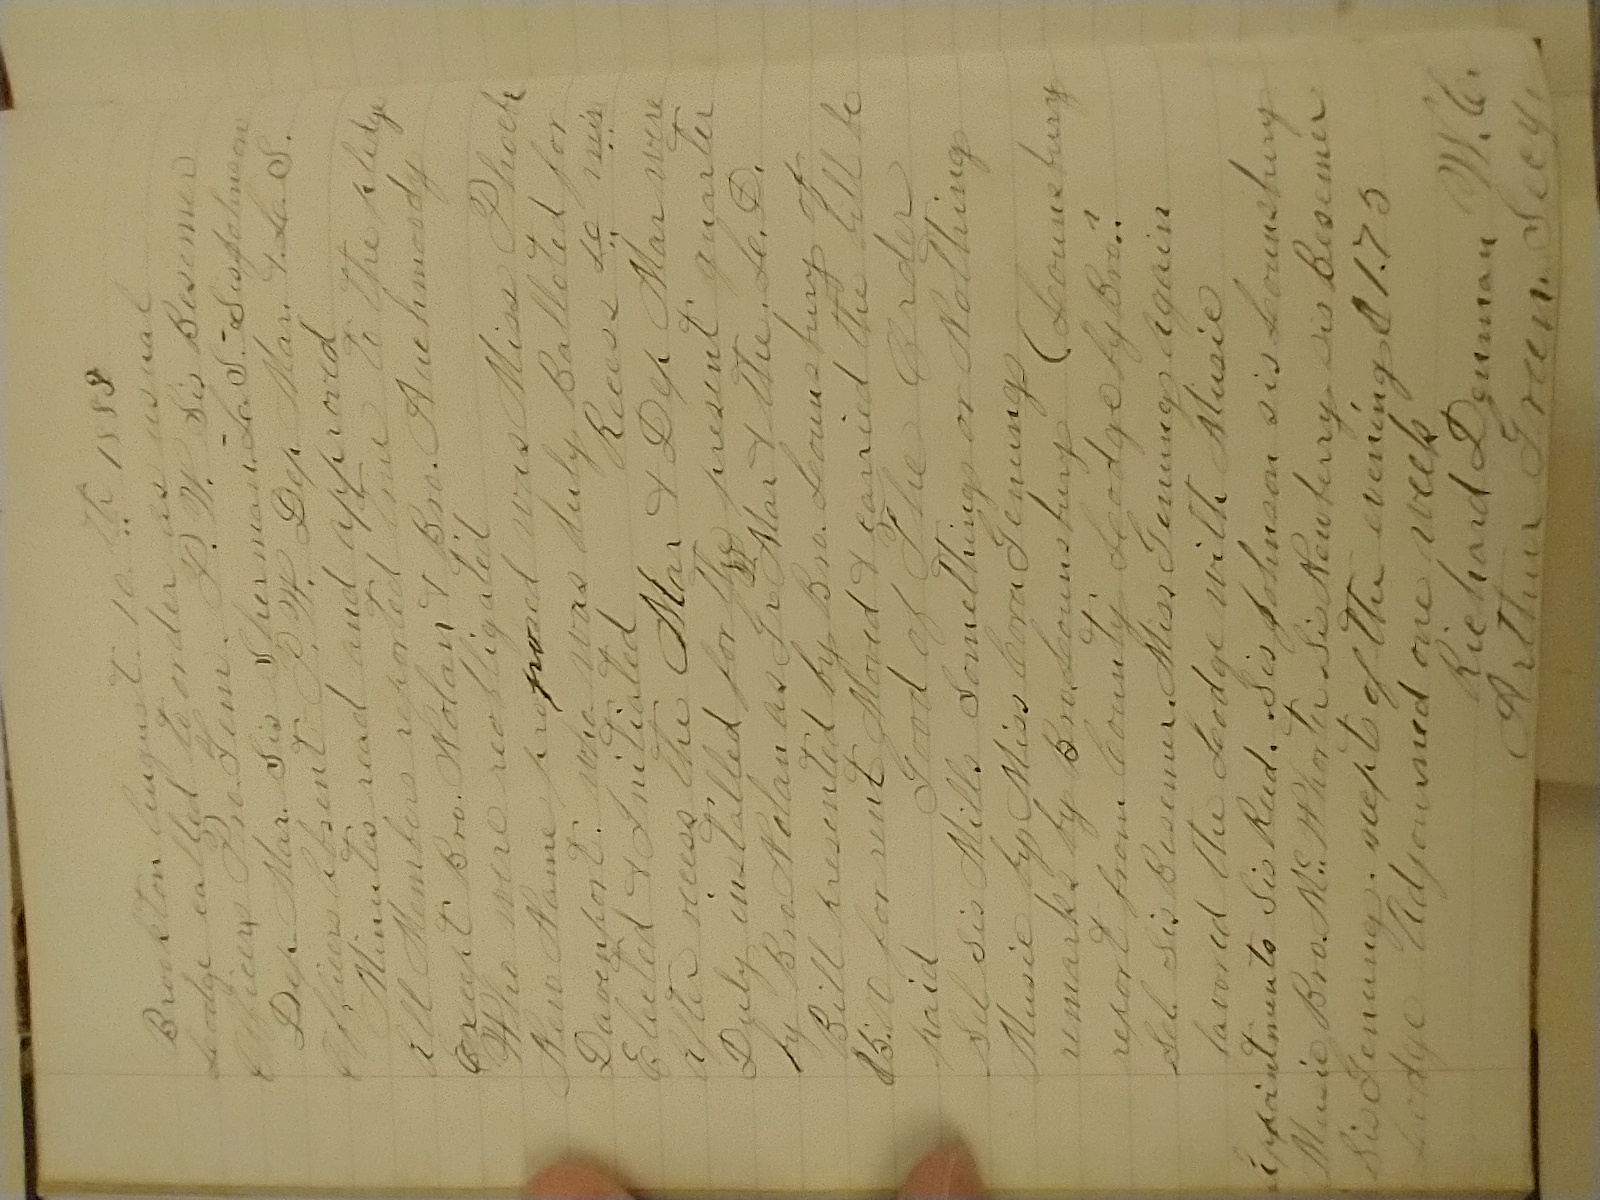 Brookton August. 10.th 1888
Lodge called to order as usual
Officers Pro. Tem. P. W. Sis Besemer
Dep. Mar. Sis Sherman. L. S. Sis Johnson
Officers Absent P. W. Dep. Mar. & L. S.
Minutes read and approved
All Members reported true to the pledge
Except Bro. Nolan & Bro. Auchmoody
Who were reobligated
New Name proposed was Miss Phoebe
Davenport. who was duly Balloted for
Elected & Initiated Recess 10 min
after recess the Mar & Dep. Mar were
Duly installed for the present quarter
by Bro. Nolan as Gr Mar & the. L. D.
Bill presented by Bro. Lounsbury of
$5.00 for rent Moved & carried the bill be
paid Good of The Order
Sel Sis Mills Something or Nothing
Music by Miss Cora Genung
remarks by Bro. Lounsbury (Lounsbury
report from County Lodge by Bro.
Sel. Sis Besemer. Miss Genung again
favored the Lodge with Music
Appointments Sis Reed. Sis Johnson sis Lounsbury
Music Bro. Mc Whorter Sis Newberry sis Besemer
Sis Genung. recepts of the evening $1.75
Lodge Adjourned one week
Richard Denman W. C.
Arthur Green. Secy.